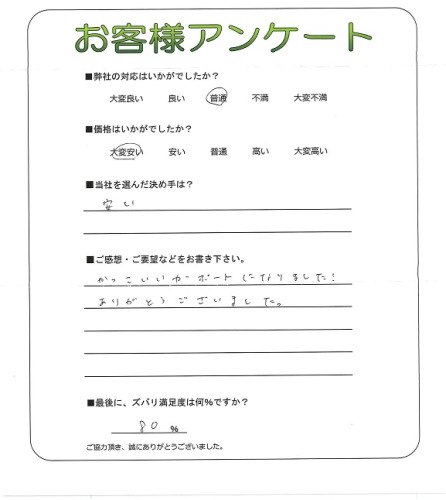 お客様アンケート
■弊社の対応はいかがでしたか？
大変良い 良い 普通 不満 大変不満
■価格はいかがでしたか？
大変安い 安い 普通 高い 大変高い
■当社を選んだ決め手は？
安い
■ご感想・ご要望などをお書き下さい。
かっこいいカーポートになりました!
ありがとうございました。
■最後に、ズバリ満足度は何%ですか？
80 %
ご協力頂き、誠にありがとうございました。